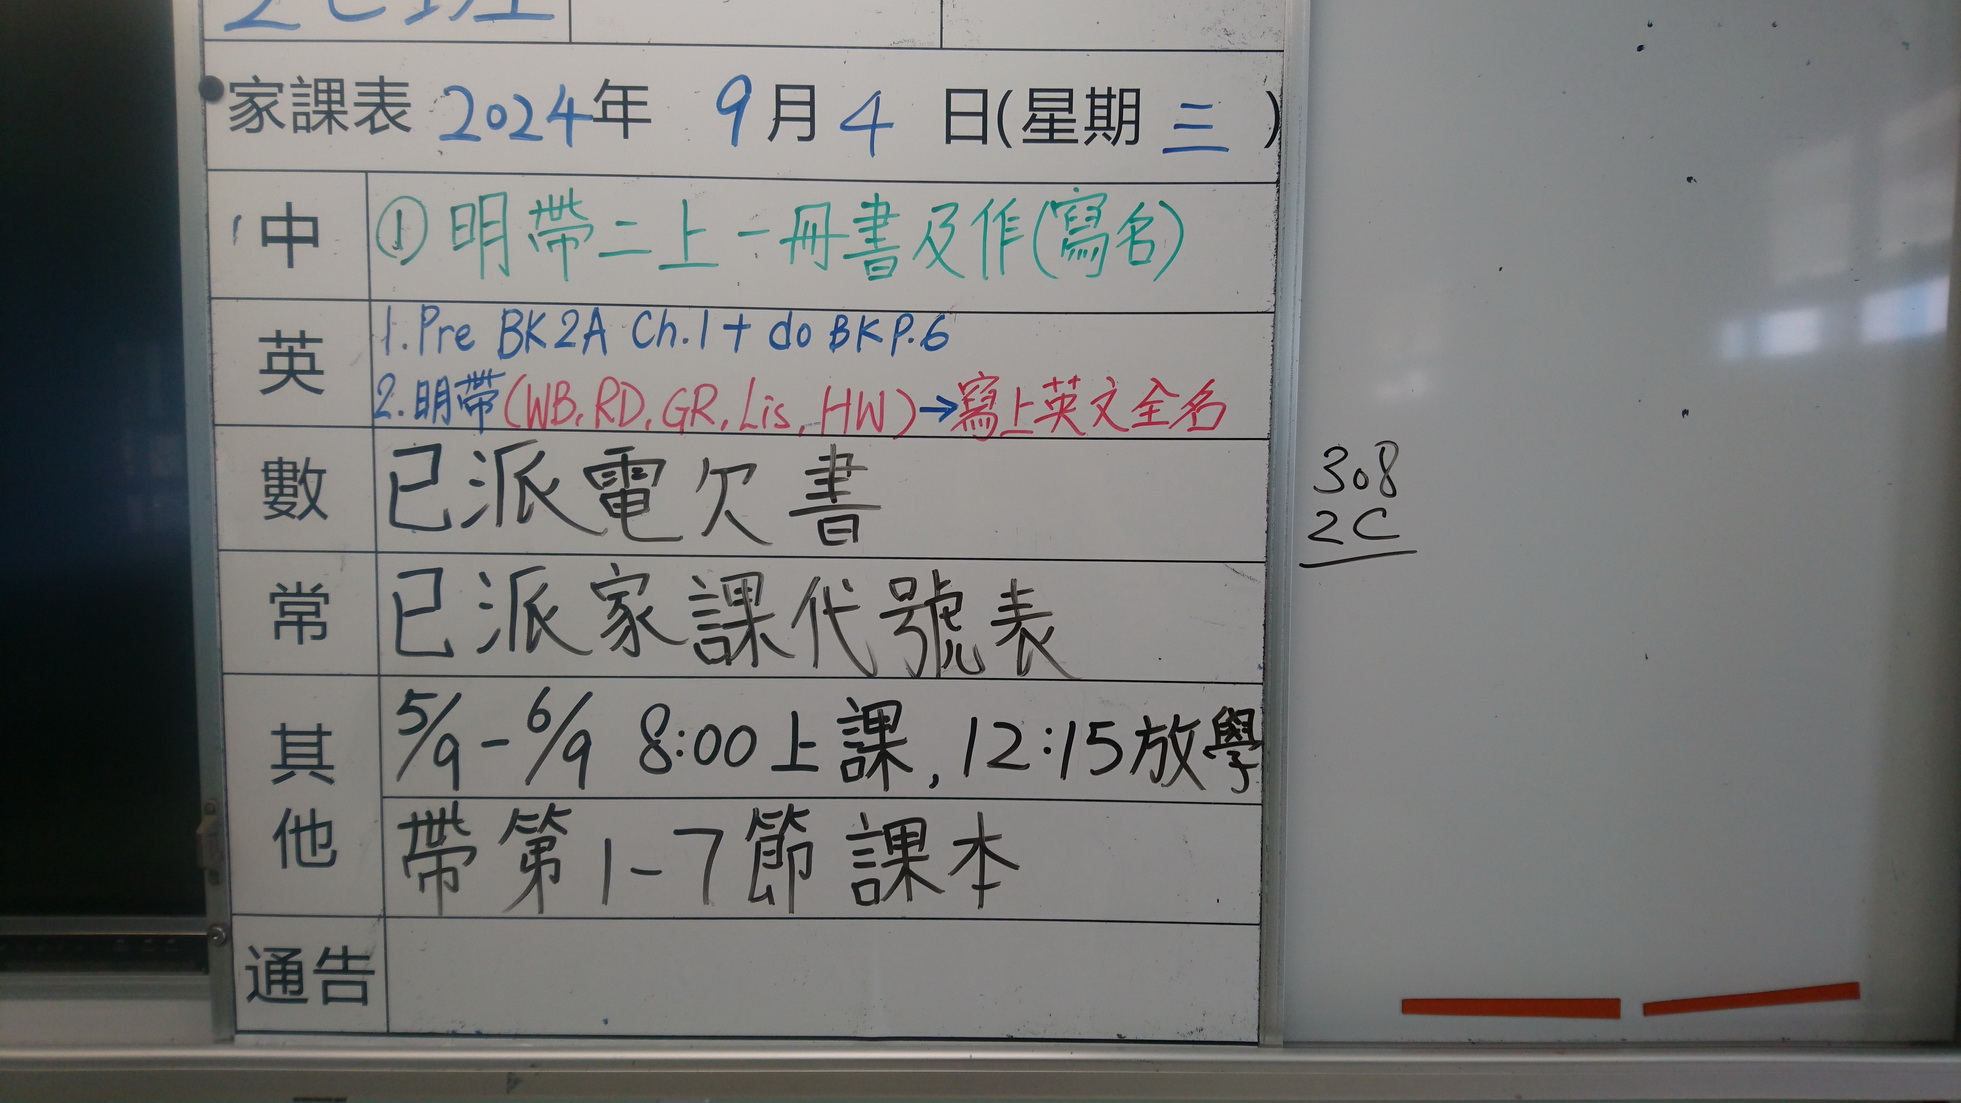 2C班
家課表 2024年 9月4日(星期三)
中 ① 明帶二上一冊書及作(寫名)
英 1. Pre BK2A Ch.1 + do BK P.6
2. 明帶(WB, RD, GR, Lis, HW)→寫上英文全名
數 已派電欠書
常 已派家課代號表
其他 5/9 - 6/9 8:00上課, 12:15放學
帶第1-7節課本
通告
308
2C